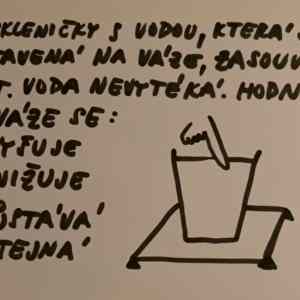 KLENIČKY S VODOU, KTERÁ
TAVENÁ NA VÁZE, ZASOUV
T. VODA NEVYTÉKÁ. HODN
VÁZE SE:
YŠUJE
NIŽUJE
ŮSTÁVÁ
TEJNÁ